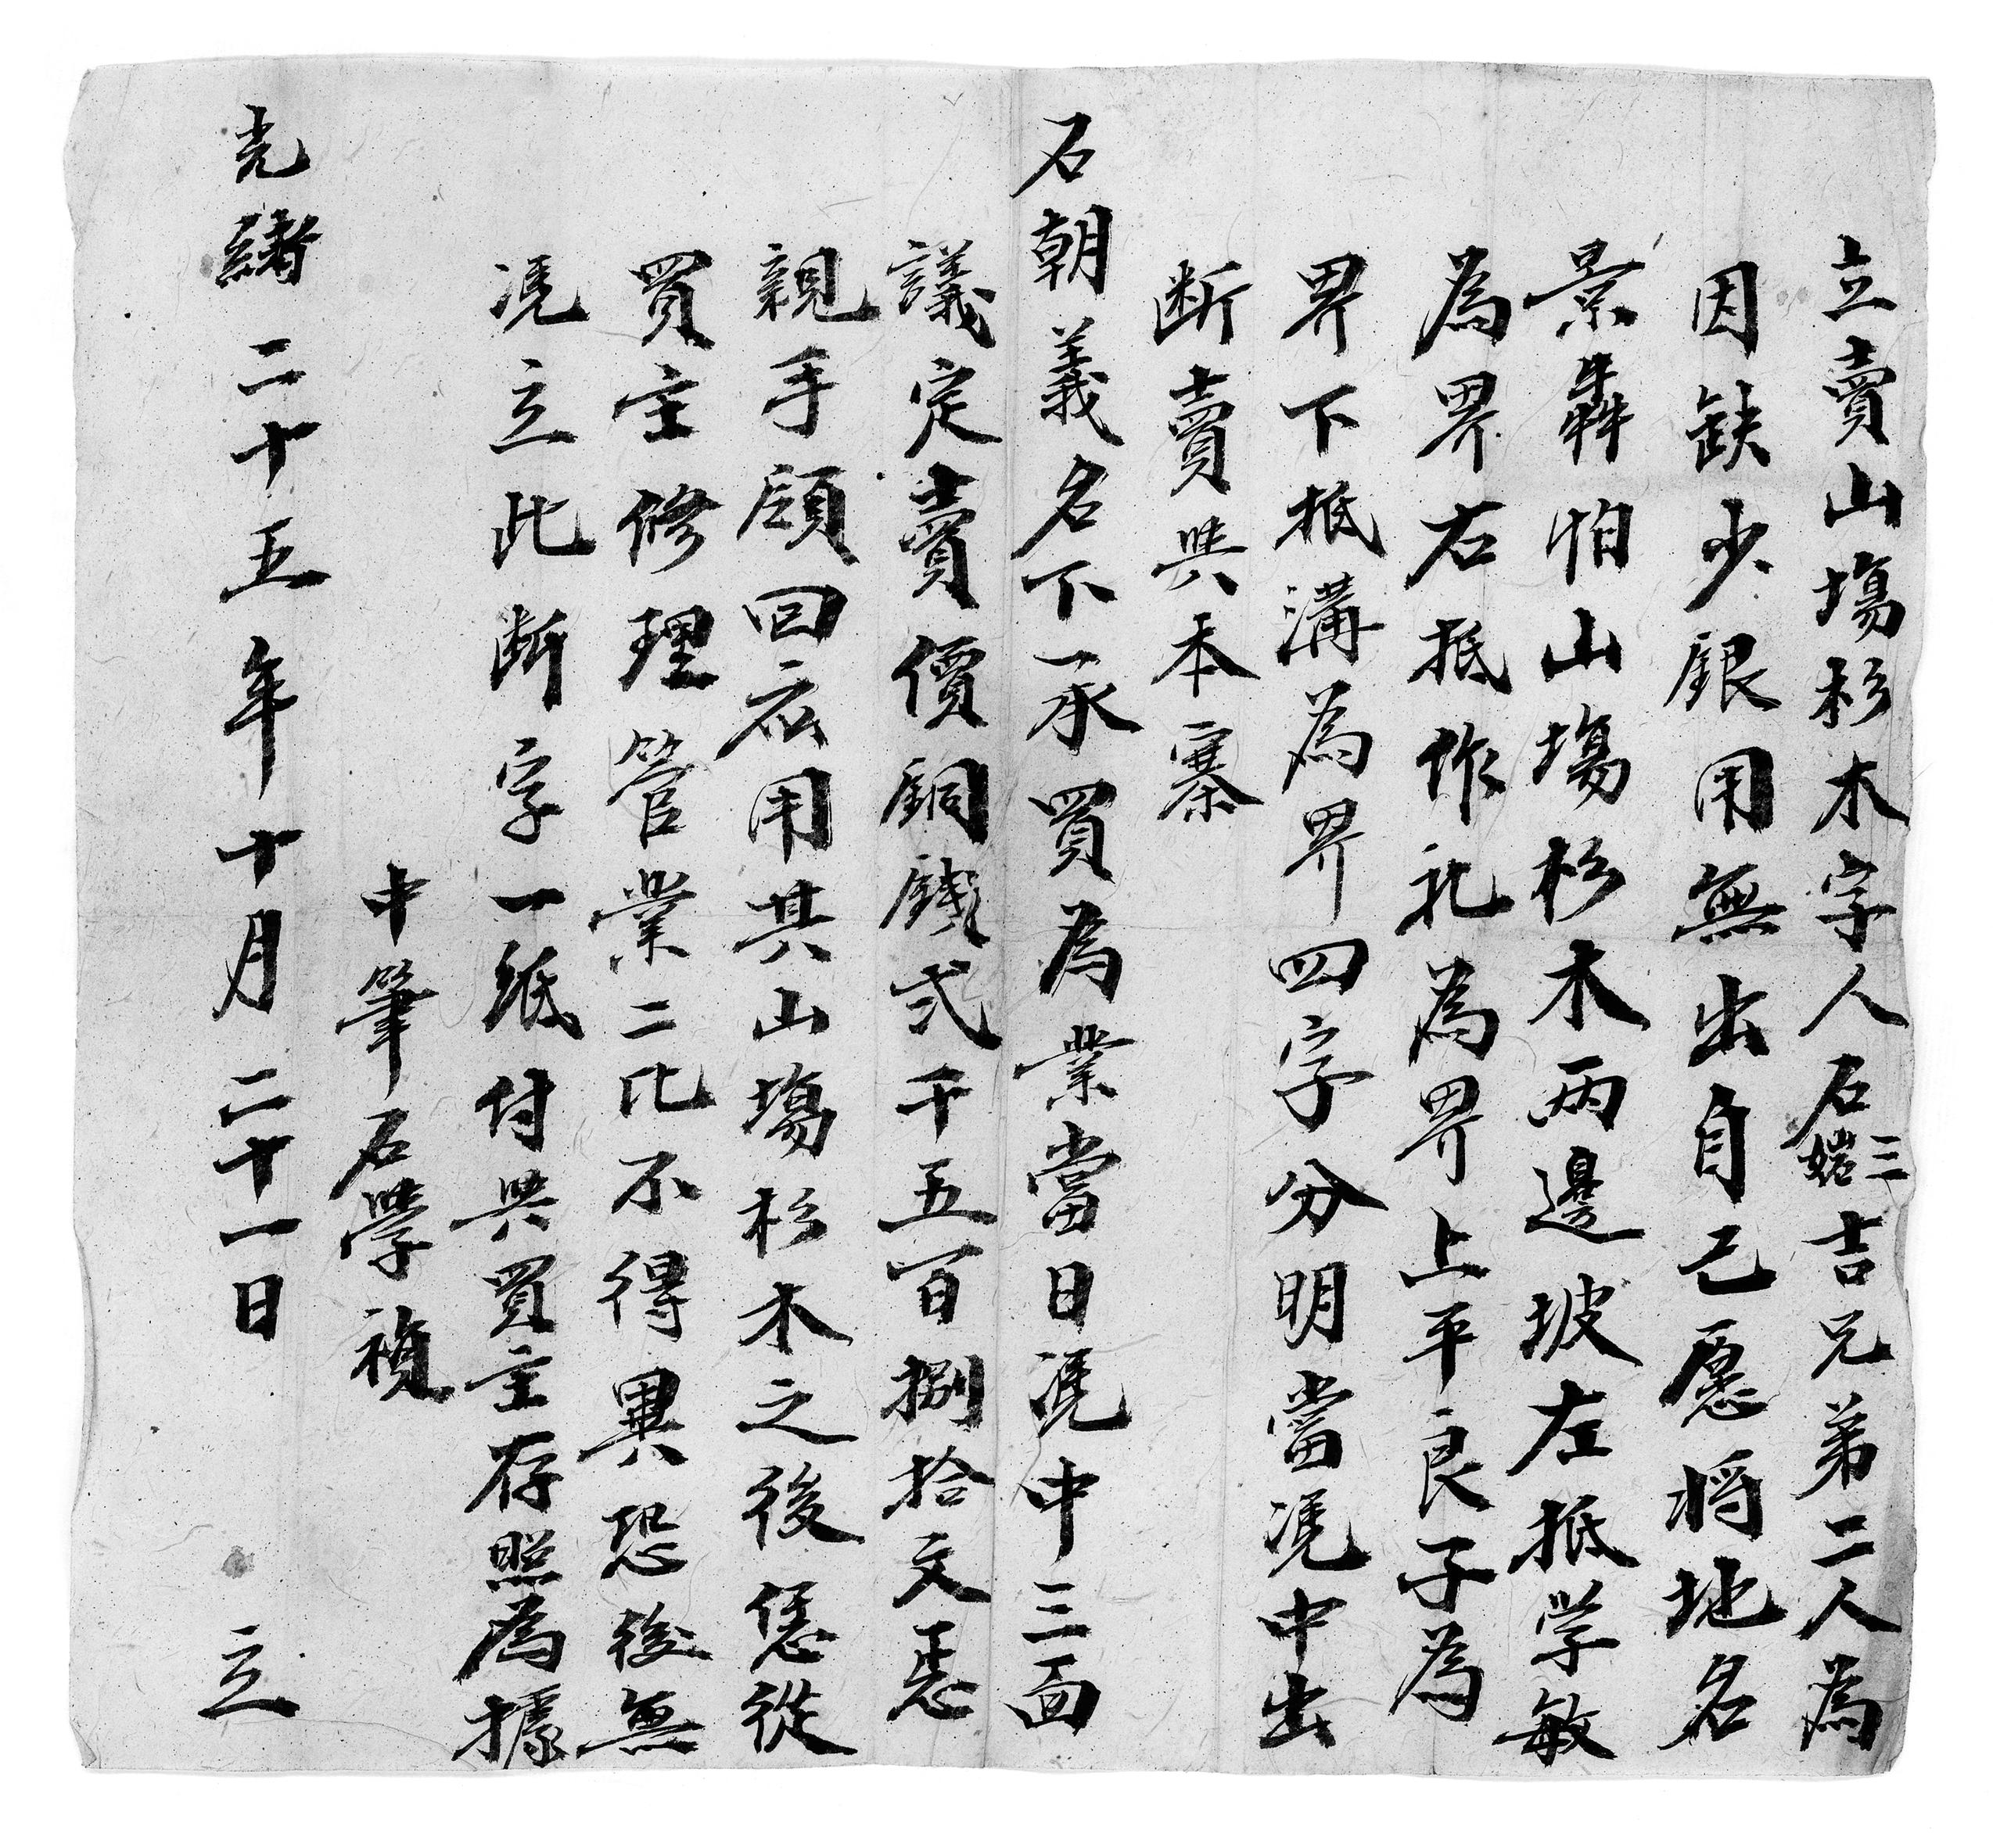 立賣山塲杉木字人石三吉兄弟二人為
因缺少銀用無出自己愿将地名
景犇怕山塲杉木两邊坡左抵学敏
為界右抵作礼為界上平良子為
界下抵溝為界四字分明當凴中出
断賣與本寨
石朝義名下承買為業當日凴中三面
議定賣價銅錢弍千五百捌拾文
親手領回应用其山塲杉木之後恁從
買主修理管業二比不得異恐後無
凴立此断字一紙付與買主存照為據
中筆石學禎
光緒二十五年十月二十一日 立